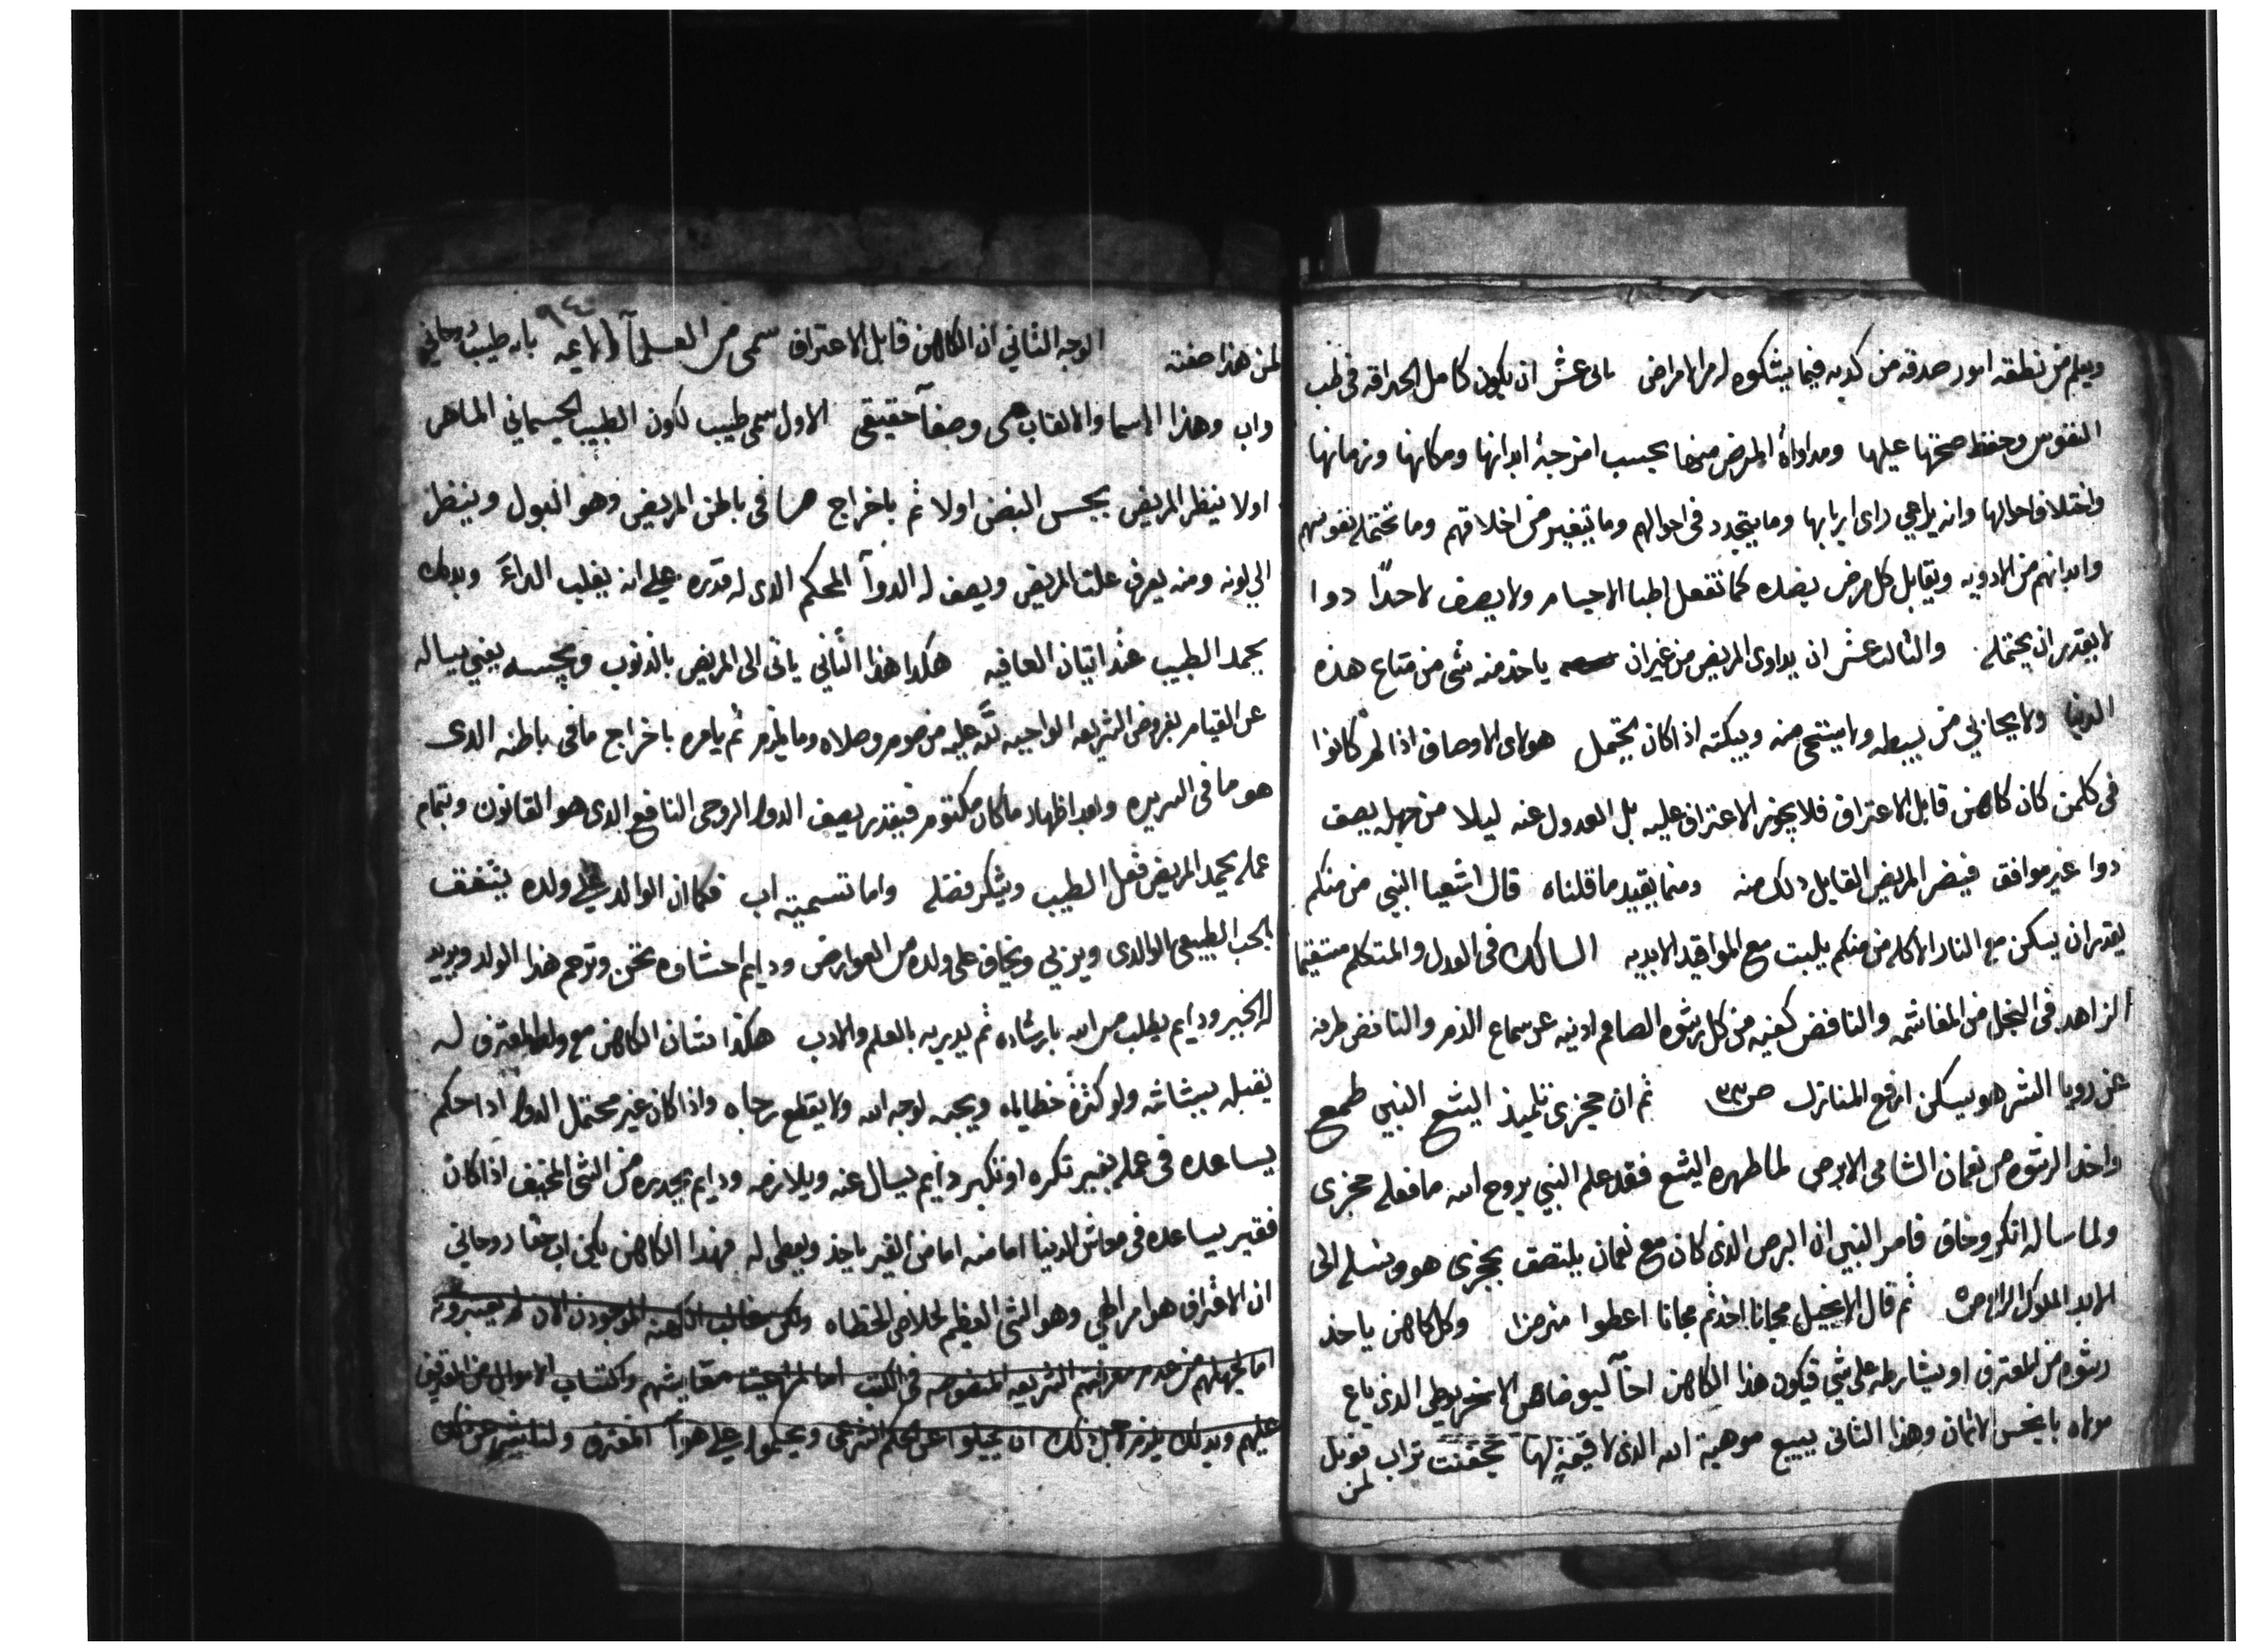 ويعلم من نطقه امور صدقه من كدبه فيما يشكوه له من الامراض تانى عشر ان يكون كامل الحداقه فى طب
النفوس وحفظ صحتها عليها ومداواة المرض منها بحسب امزجة ابدانها ومكانها وزمانها
واختلاف احوالها وانه يراعي راى اربابها وما يتجدد فى احوالهم وما يتغير من اخلاقهم وما تحتمله نفوسهم
وابدانهم من الادويه ويقابل كل مرض بضده كما تفعل اطبا الاجسام ولا يصف لاحدًا دوا
لا يقدر ان يحتمله والثالث عشر ان يداوى المريض من غير ان ياخد منه شى من متاع هذه
الدنيا ولا يحابي من يبسطه ولا ينتقى منه ويبكته اذا كان يحتمل هولاى الاوصاف اذا لم كانوا
فى كلمن كان كاهن قابل الاعتراف فلا يجوز الاعتراف عليه بل العدول عنه ليلا من جهله يصف
دوا غير موافق فيضر المريض القابل دلك منه ومما يقيد ما قلناه قال اشعيا النبي من منكم
يقدر ان يسكن مع النار الاكله من منكم يلبت مع المواقيد الابديه السالك فى العدل والمتكلم مستقيما
الزاهد فى البخل من المغاشمه والنافض كفيه من كل رشوه الصامم ادنيه عن سماع الذم والناغض طرفه
عن رويا الشر هو يسكن ارفع المنازل ص ٣٣ ثم ان جحزى تلميذ اليشع النبي طمع
واخد الرشوه من نعمان الشامى الابرص لما طهره اليشع فقد علم النبي بروح الله ما فعله جحزى
ولما ساله انكر وخاف فامر النبي ان البرص الذى كان مع نعمان يلتصق بجحزى هو ونسله الى
الابد الملوك الرابع ص ٥ ثم قال الانجيل مجانا اخدتم مجانا اعطوا وكل كاهن ياخد
رشوه من المعترف او يشارطه على شي فيكون هذا الكاهن اخآ ليوضاهى الاسخريوطي الدى باع
مولاه بابخس الاثمان وهذا الثانى يبيع موهبة الله الذى لا قيمة لها بحفنت تراب فويل
لمن
٩٤
لمن هذا صفته الوجه الثاني ان الكاهن قابل الاعتراف سمى من العلمآ والايمه بانه طبيب روحاني
واب وهذا الاسما والالقاب هى وصفآ حقيقى الاول سمى طبيب لكون الطبيب الجسماني الماهر
اولا ينظر المريض بجس النبض اولا ثم باخراج ما فى باطن المريض وهو البول وينظر
الي لونه ومنه يعرف علت المريض ويصف له الدوآ المحكم الدى له قدره على انه يغلب الداءَ وبدلك
يحمد الطبيب عند اتيان العافيه هكدا هذا الثاني ياتى الى المريض بالدنوب ويجسه يعني يساله
عن القيام بفروض الشريعه الواجبه لله عليه من صوم وصلاه وما يلزم ثم يامره باخراج ما فى باطنه الدى
هو ما فى السريره وبعد اظهار ما كان مكتوم فيقدر يصف الدوا الروحى النافع الدى هو القانون وبتمام
عمله يحمد المريض فعل الطبيب ويشكر فضله واما تسميته اب فكما ان الوالد على ولده يشفق
بالحب الطبيعى الوالدى ويربي ويخاف على ولده من العوارض ودايم احشاوه تحن وترحم هذا الولد ويريد
له الخير ودايم يطلب من الله بارشاده ثم يدبره بالعلم والادب هكدا شان الكاهن مع ولده المعترف له
يقبله ببشاشه ولو كثرة خطاياه ويحبه لوجه الله ولا يقطع رجاه واذا كان غير محتمل الدوا اداحكم
يساعده فى عمله بغير تكره او تكبر دايم يسال عنه ويلازمه ودايم يحدره من الشى المخيف اذا كان
فقير يساعده فى معاش الدنيا اما منه اما من الغير ياخد ويعطى له فهدا الكاهن يكن اب حقا روحاني
ان الاعتراف هو امر الهي وهو الشى العظيم لخلاص الخطاه ولكن غالب الكهنه الموجودين الان لم يعتبرونه
اما لجهلهم من عدم معرفتهم الشريعه المنصوصه فى الكتب اما لمراعيت معايشهم واكتساب الاموال من المعترفين
عليهم وبدلك يلزم لاجل دلك ان يميلوا عن الحكم الشرعى ويحكموا على هوآ المعترف